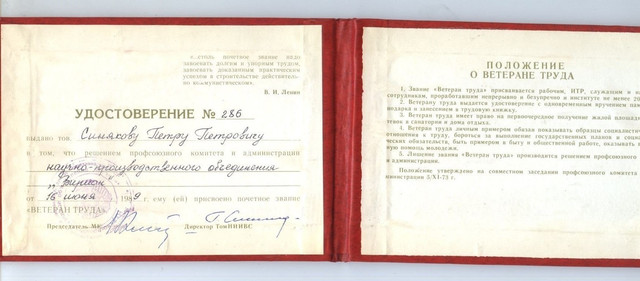 «...столь почетное звание надо
завоевать долгим и упорным трудом,
завоевать доказанным практическим
успехом в строительстве действительно
но коммунистическом».
В. И. Ленин
УДОСТОВЕРЕНИЕ № 286
выдано тов. Симакову Петру Петровичу
в том, что решением профсоюзного комитета и администрации
научно-производственного объединения
„Вирион"
от „16 июня 1989 г. ему (ей) присвоено почетное звание
«ВЕТЕРАН ТРУДА»
Председатель МК
Директор ТомНИИВС
ПОЛОЖЕНИЕ
О ВЕТЕРАНЕ ТРУДА
1. Звание «Ветеран труда» присваивается рабочим, ИТР, служащим и
сотрудникам, проработавшим непрерывно и безупречно в институте не менее
2. Ветерану труда выдается удостоверение с одновременным вручением
подарка и занесением в трудовую книжку.
3. Ветеран труда имеет право на первоочередное получение жилой
путевок в санатории и дома отдыха.
4. Ветеран труда личным примером обязан показывать образцы
отношения к труду, бороться за выполнение государственных планов и
обязательств, быть примером в быту и общественной работе, оказывать
помощь молодежи.
5. Лишение звания «Ветеран труда» производится решением профсоюзного
и администрации.
Положение утверждено на совместном заседании профсоюзного комитета
3/XI-75 г.